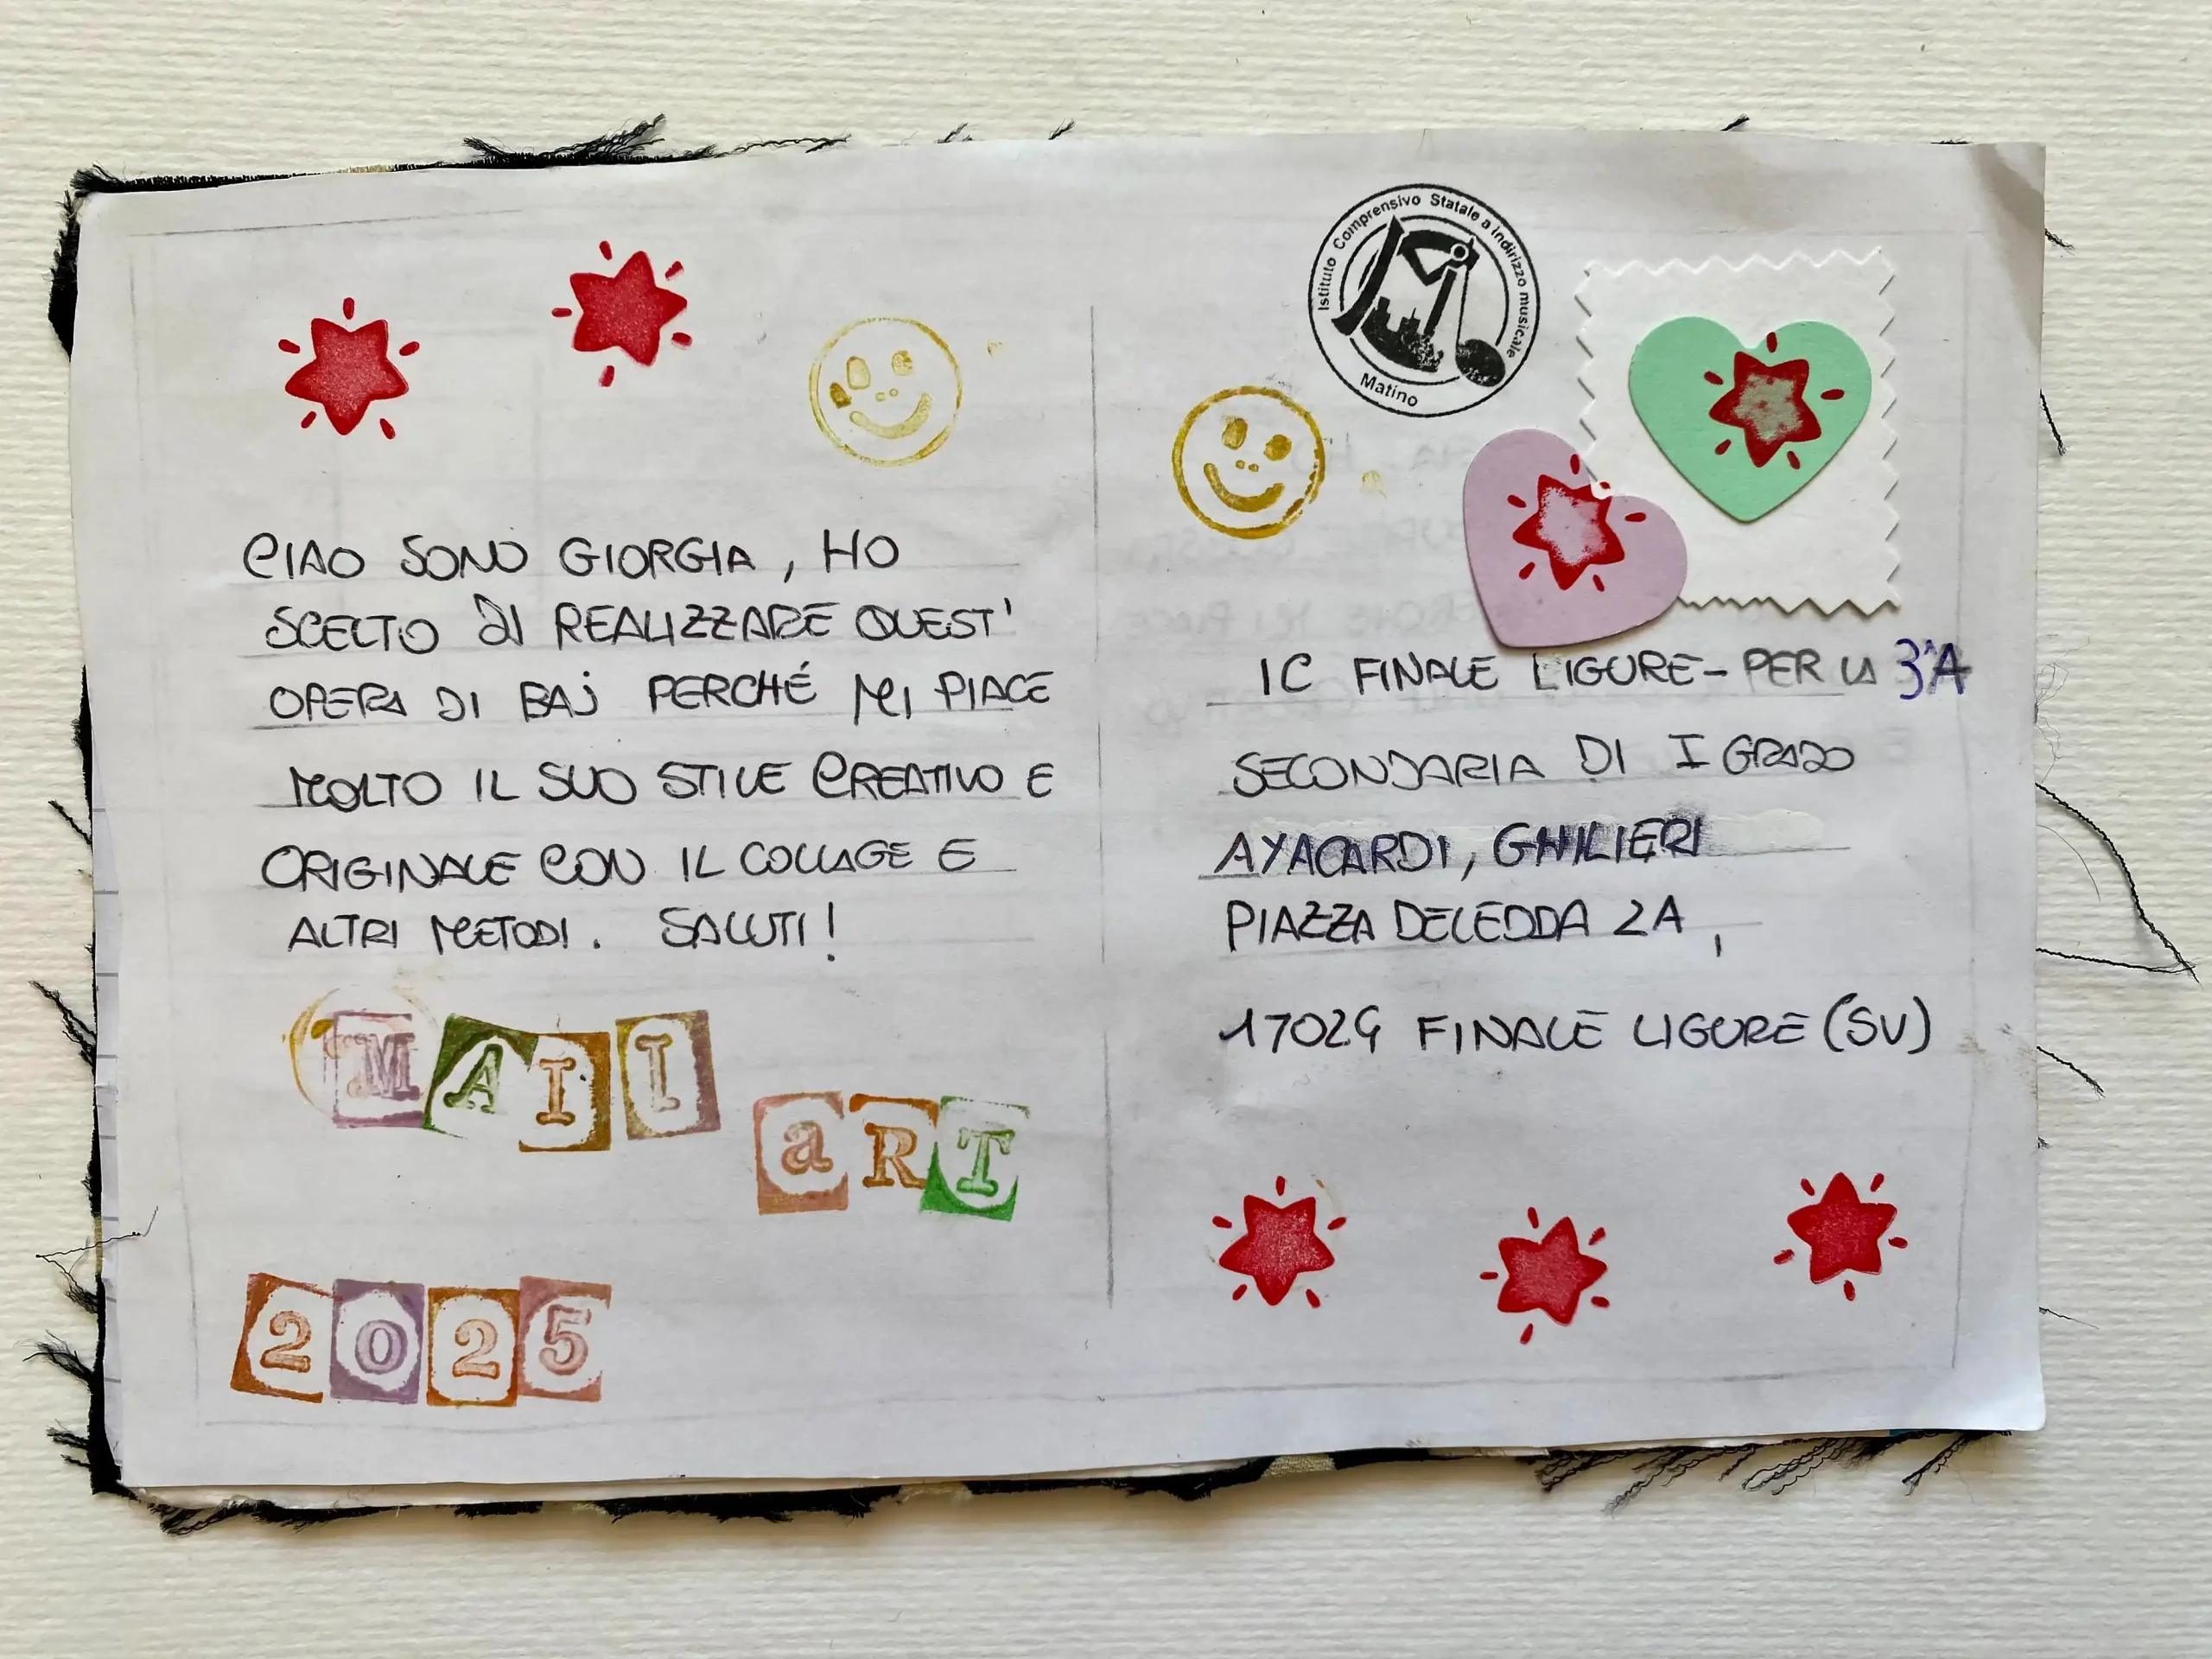 CIAO SONO GIORGIA, HO
SCELTO DI REALIZZARE QUEST'
OPERA DI BAJ PERCHÉ MI PIACE
MOLTO IL SUO STILE CREATIVO E
ORIGINALE CON IL COLLAGE E
ALTRI METODI. SALUTI!
MAIL
aRT
2025
Istituto Comprensivo Statale a indirizzo musicale
Matino
IC FINALE LIGURE - PER LA 3^A
SECONDARIA DI I GRADO
AYACARDI, GHILIERI
PIAZZA DELEDDA 2A,
17024 FINALE LIGURE (SV)